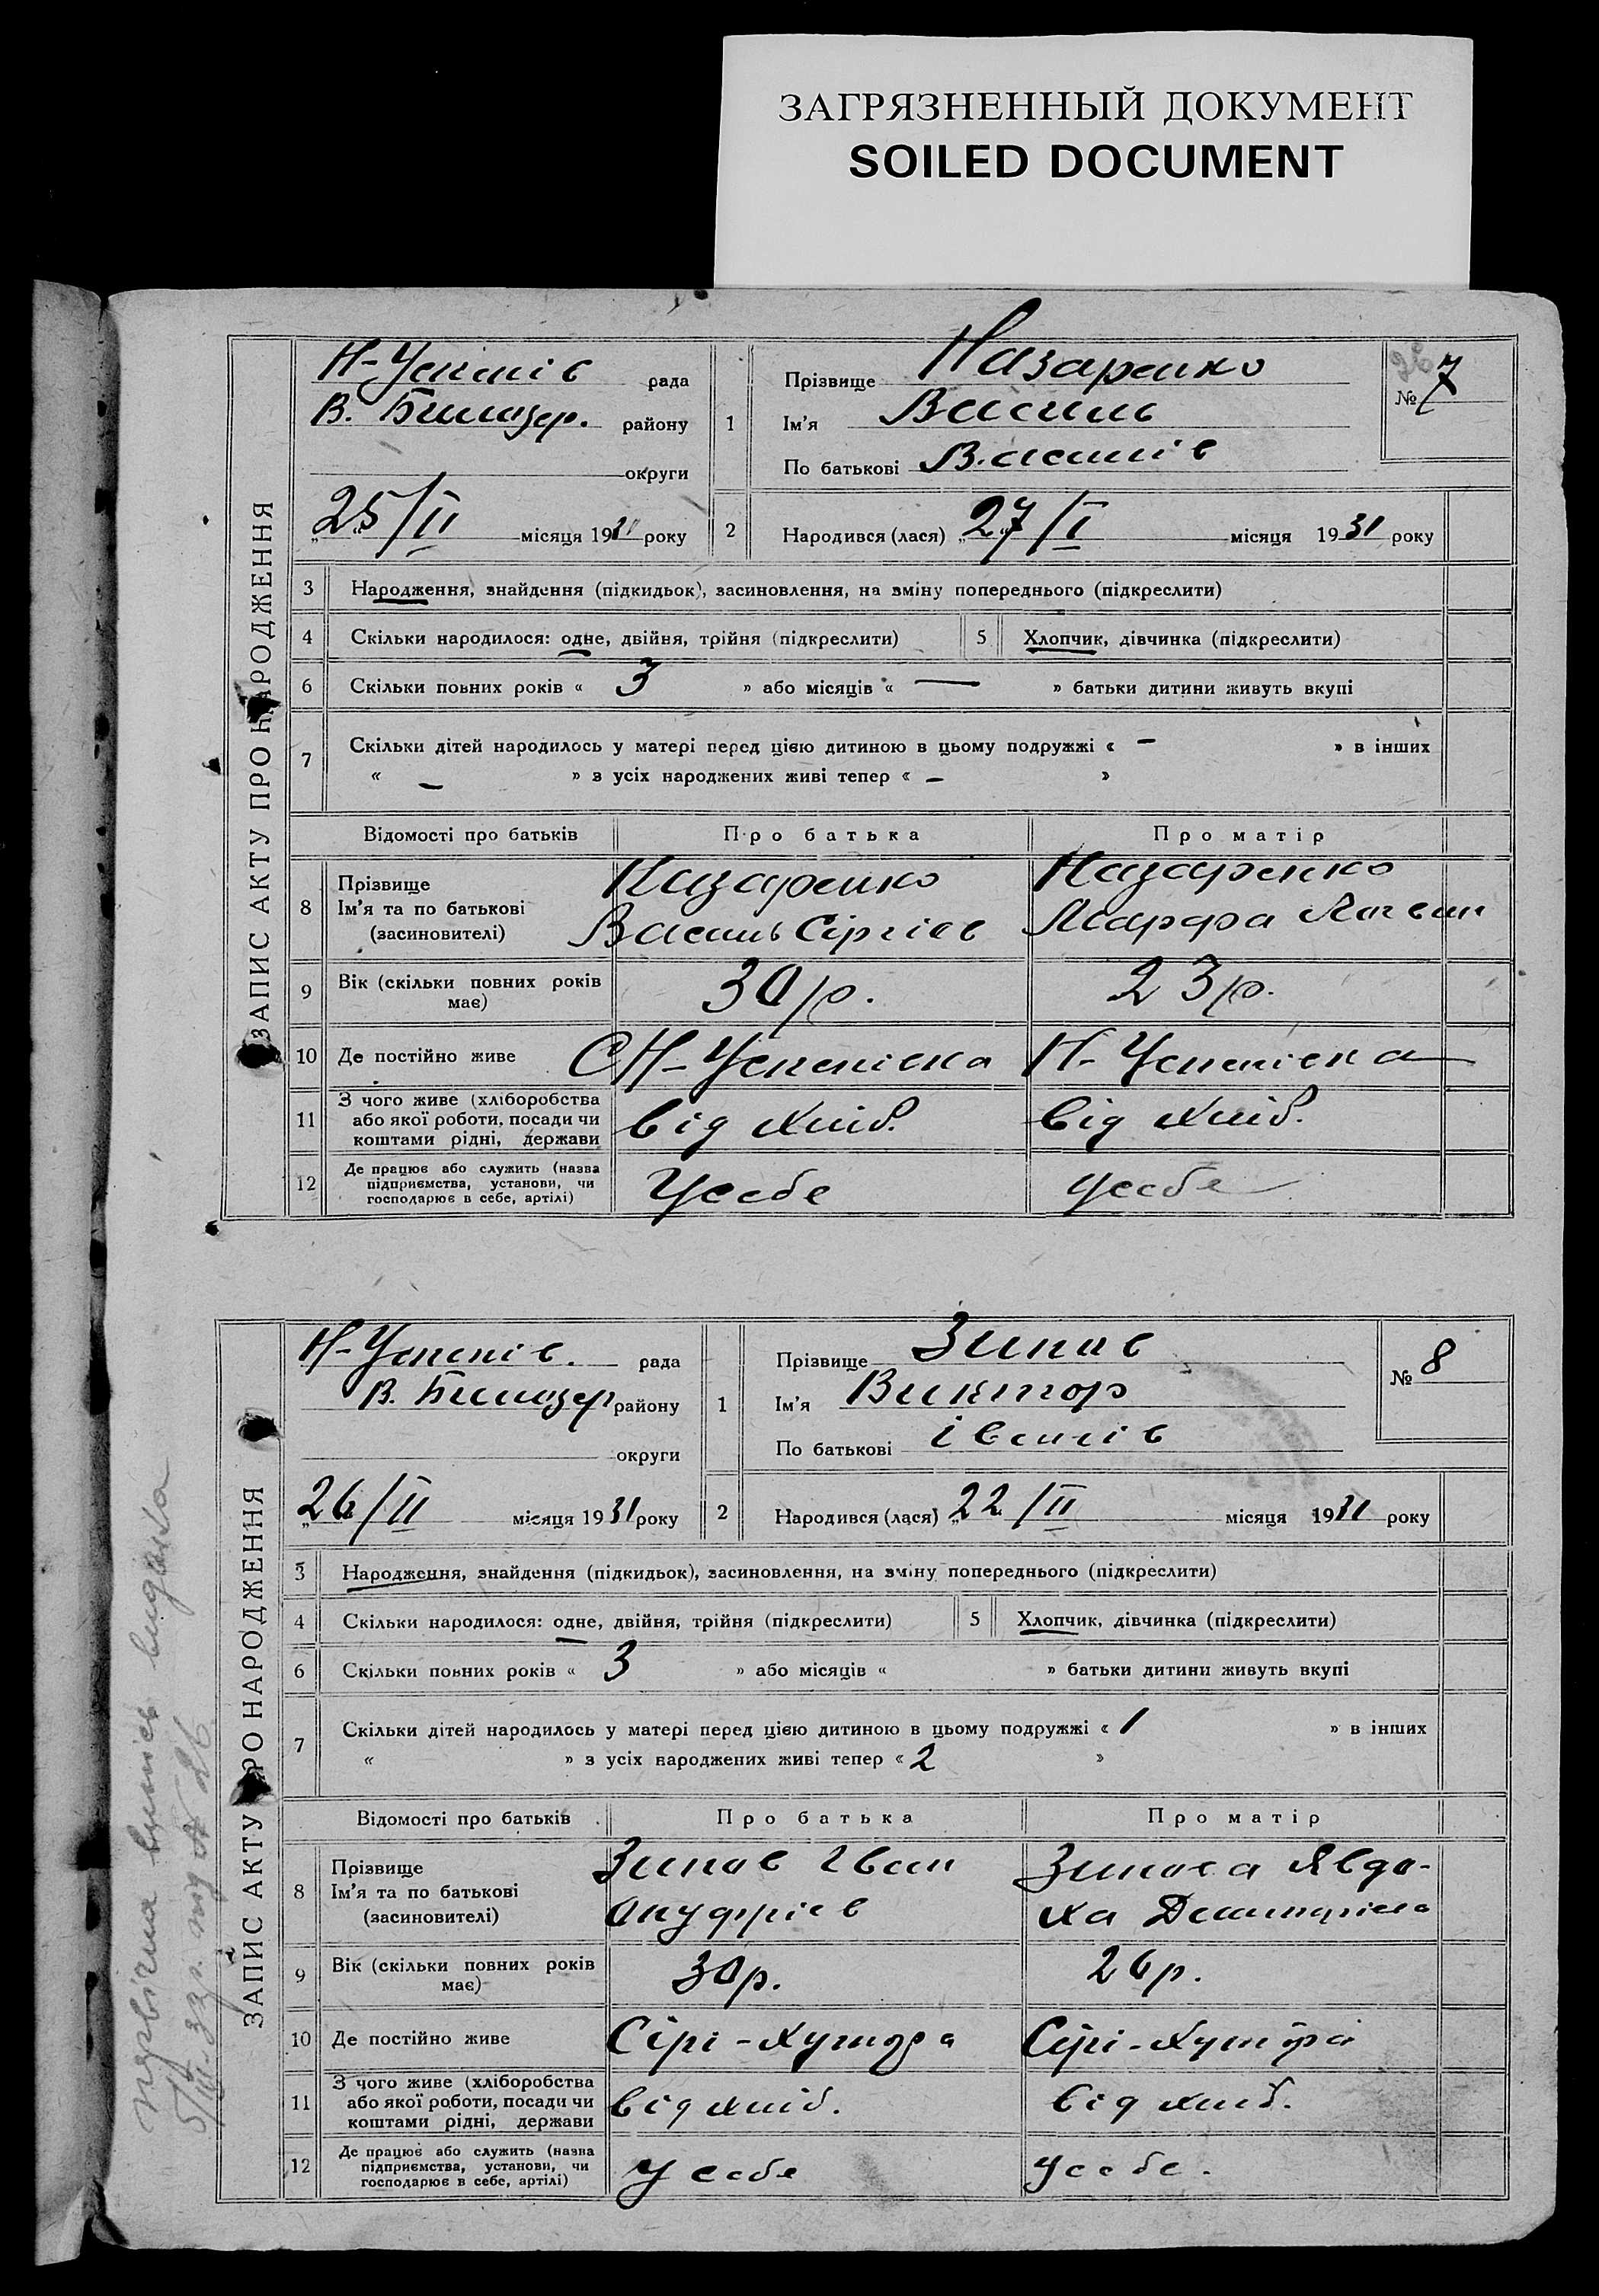 ЗАГРЯЗНЕННЫЙ ДОКУМЕНТ
SOILED DOCUMENT
ЗАПИС АКТУ ПРО НАРОДЖЕННЯ
Н-Успенів рада
В. Билозер. району
округи
„25/II місяця 1931 року
1 Прізвище Назаренко
Ім'я Василь
По батькові Василів
№ 7
2 Народився (лася) „27/I місяця 1931 року
3 Народження, знайдення (підкидьок), засиновлення, на зміну попереднього (підкреслити)
4 Скільки народилося: одне, двійня, трійня (підкреслити) 5 Хлопчик, дівчинка (підкреслити)
6 Скільки повних років « 3 » або місяців « — » батьки дитини живуть вкупі
7 Скільки дітей народилось у матері перед цією дитиною в цьому подружжі « – » в інших
« – » з усіх народжених живі тепер « – »
Відомості про батьків Про батька Про матір
8 Прізвище Ім'я та по батькові (засиновителі)
Назаренко Назаренко
Василь Сіргієв Марфа
9 Вік (скільки повних років має) 30 р. 23 р.
10 Де постійно живе С Н-Успенівка Н-Успенівка
11 З чого живе (хліборобства
або якої роботи, посади чи
коштами рідні, держави
від хліб. від хліб.
12 Де працює або служить (назва
підприємства, установи, чи
господарює в себе, артілі)
Усебе усебе
ЗАПИС АКТУ ПРО НАРОДЖЕННЯ
Н-Успенів. рада
В. Билозер району
округи
„26/II місяця 1931 року
1 Прізвище Зинов
Ім'я Виктор
По батькові Іванів
№ 8
2 Народився (лася) „22/II місяця 1931 року
3 Народження, знайдення (підкидьок), засиновлення, на зміну попереднього (підкреслити)
4 Скільки народилося: одне, двійня, трійня (підкреслити) 5 Хлопчик, дівчинка (підкреслити)
6 Скільки повних років « 3 » або місяців « » батьки дитини живуть вкупі
7 Скільки дітей народилось у матері перед цією дитиною в цьому подружжі « 1 » в інших
« » з усіх народжених живі тепер « 2 »
Відомості про батьків Про батька Про матір
8 Прізвище Ім'я та по батькові (засиновителі)
Зинов Іван Зинова Явдо-
Онуфріев ха Дмитріева
9 Вік (скільки повних років має) 30 р. 26 р.
10 Де постійно живе Сірі-Хутора Сірі-Хутора
11 З чого живе (хліборобства
або якої роботи, посади чи
коштами рідні, держави
від хліб. від хліб.
12 Де працює або служить (назва
підприємства, установи, чи
господарює в себе, артілі)
У себе у себе.
виписъ видана
5/III 33 р. під № 26